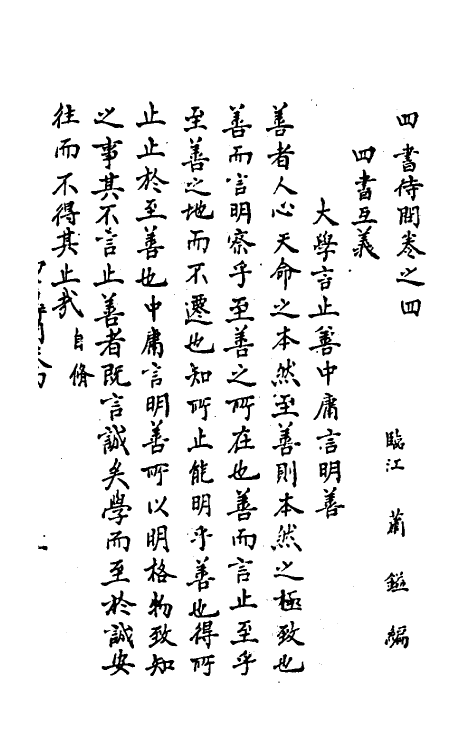 四書待問卷之四
臨江 蕭鎰 編
四書互義
大學言止善中庸言明善
善者人心天命之本然至善則本然之極致也
善而言明察乎至善之所在也善而言止至乎
至善之地而不遷也知所止能明乎善也得所
止止於至善也中庸言明善所以明格物致知
之事其不言止善者既言誠矣學而至於誠安
往而不得其止哉 自脩